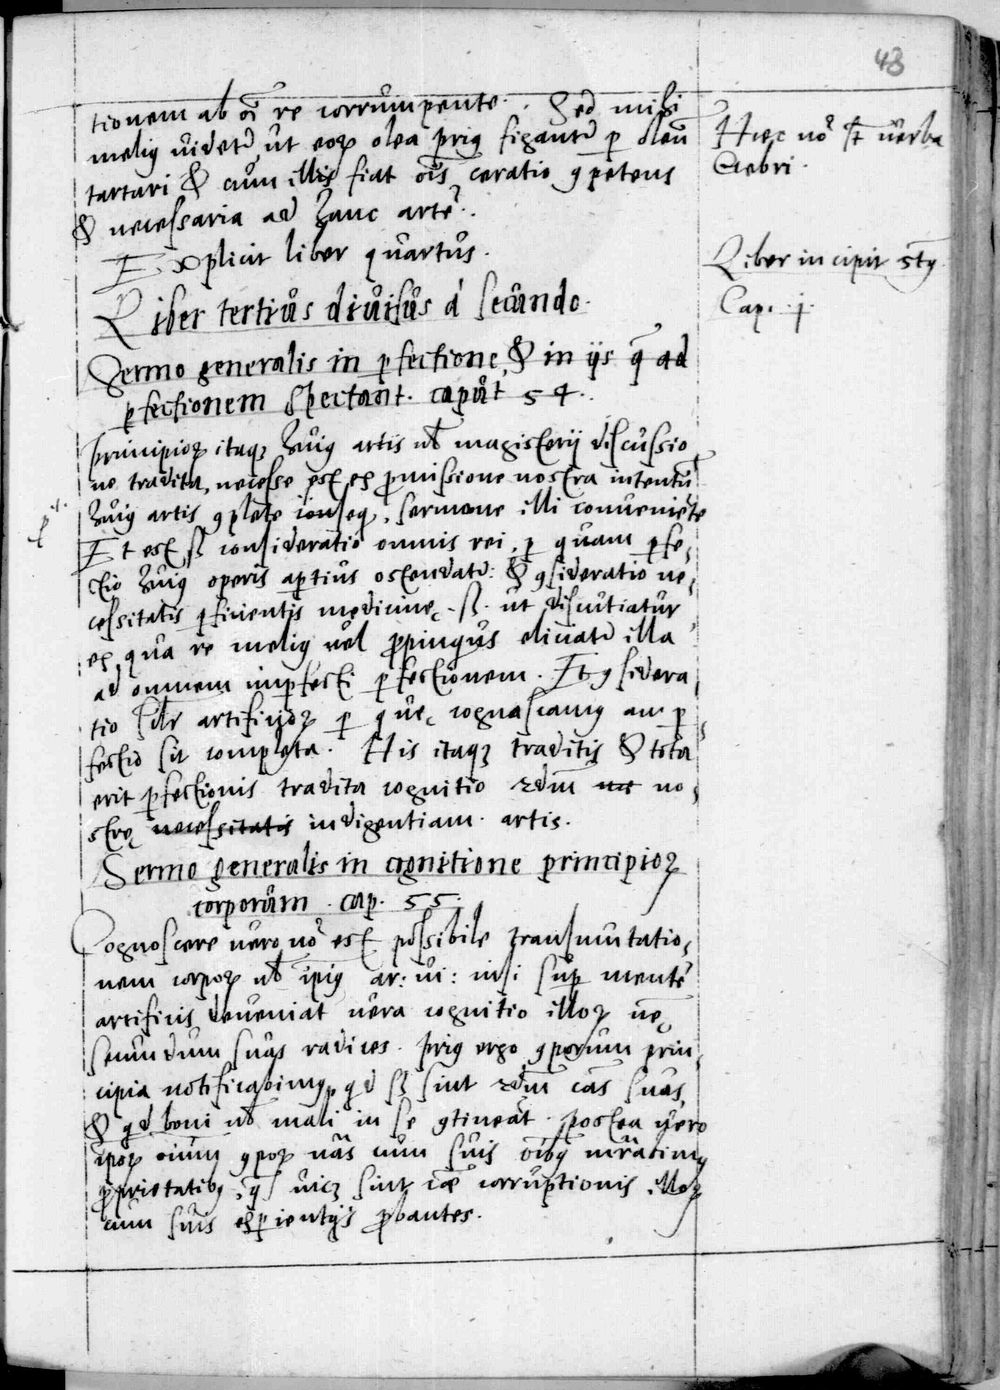 48
tionem ab oī re corrumpente. Sed mihi
meliꝰ videtr̄ ut eoꝝ olea priꝰ figantr̄ ꝑ oleū
tartari & cum illis fiat oīs ceratio ꝯpetens
& necessaria ad hanc artē.
Explicit liber quartus.
Liber tertius divisus á secundo.
Sermo generalis in ꝑfectione, & in ijs q̄ ad
ꝑfectionem spectant. caput 54.
Principioꝝ itaqꝫ huiꝰ artis ut magisterij discussio,
ne tradita, necesse est ex ꝓmissione nostra intentū
huiꝰ artis ꝯplete conseq, sermone illi conveniēte
Et est ſꝫ consideratio omnis rei, ꝑ quam ꝑfe,
ctio huiꝰ operis aptius ostendatr̄: & ꝯsideratio ne,
cessitatis ꝑficientis medicinę. ſꝫ. ut discutiatur
ex qua re meliꝰ vel ꝓpinquus eliciatr̄ illa
ad omnem imꝑfecti ꝑfectionem. Et ꝯsidera,
tio artificioꝝ ꝑ quę cognoscamꝰ an ꝑ,
fectio sit completa. His itaqꝫ traditis & tota
erit ꝑfectionis tradita cognitio ꝫdm̄ no,
strę necessitatis indigentiam artis.
Sermo generalis in cognitione principioꝝ
corporum. cap. 55.
Cognoscere vero nō est possibile transmutatio,
nem corpoꝝ ut ipiꝰ ar: vi: nisi suꝑ mentē
artificis deveniat vera cognitio illoꝝ
secundum suas radices. Priꝰ ergo ꝯporum prin,
cipia notificabimꝰ, qd ſꝫ sint ꝫdm̄ cās suas,
& qd boni ut mali in se ꝯtineāt. Postea vero
ip̄oꝝ oīum ꝯpoꝝ nās cum suis oībꝰ mr̄abimꝰ
ꝓprietatibꝰ, vicꝫ sint cāe corruptionis illoꝝ
cum suis exꝑientijs ꝓbantes.
Hęc nō st̄ verba
Gebri.
Liber incipit stꝰ
Cap. j.